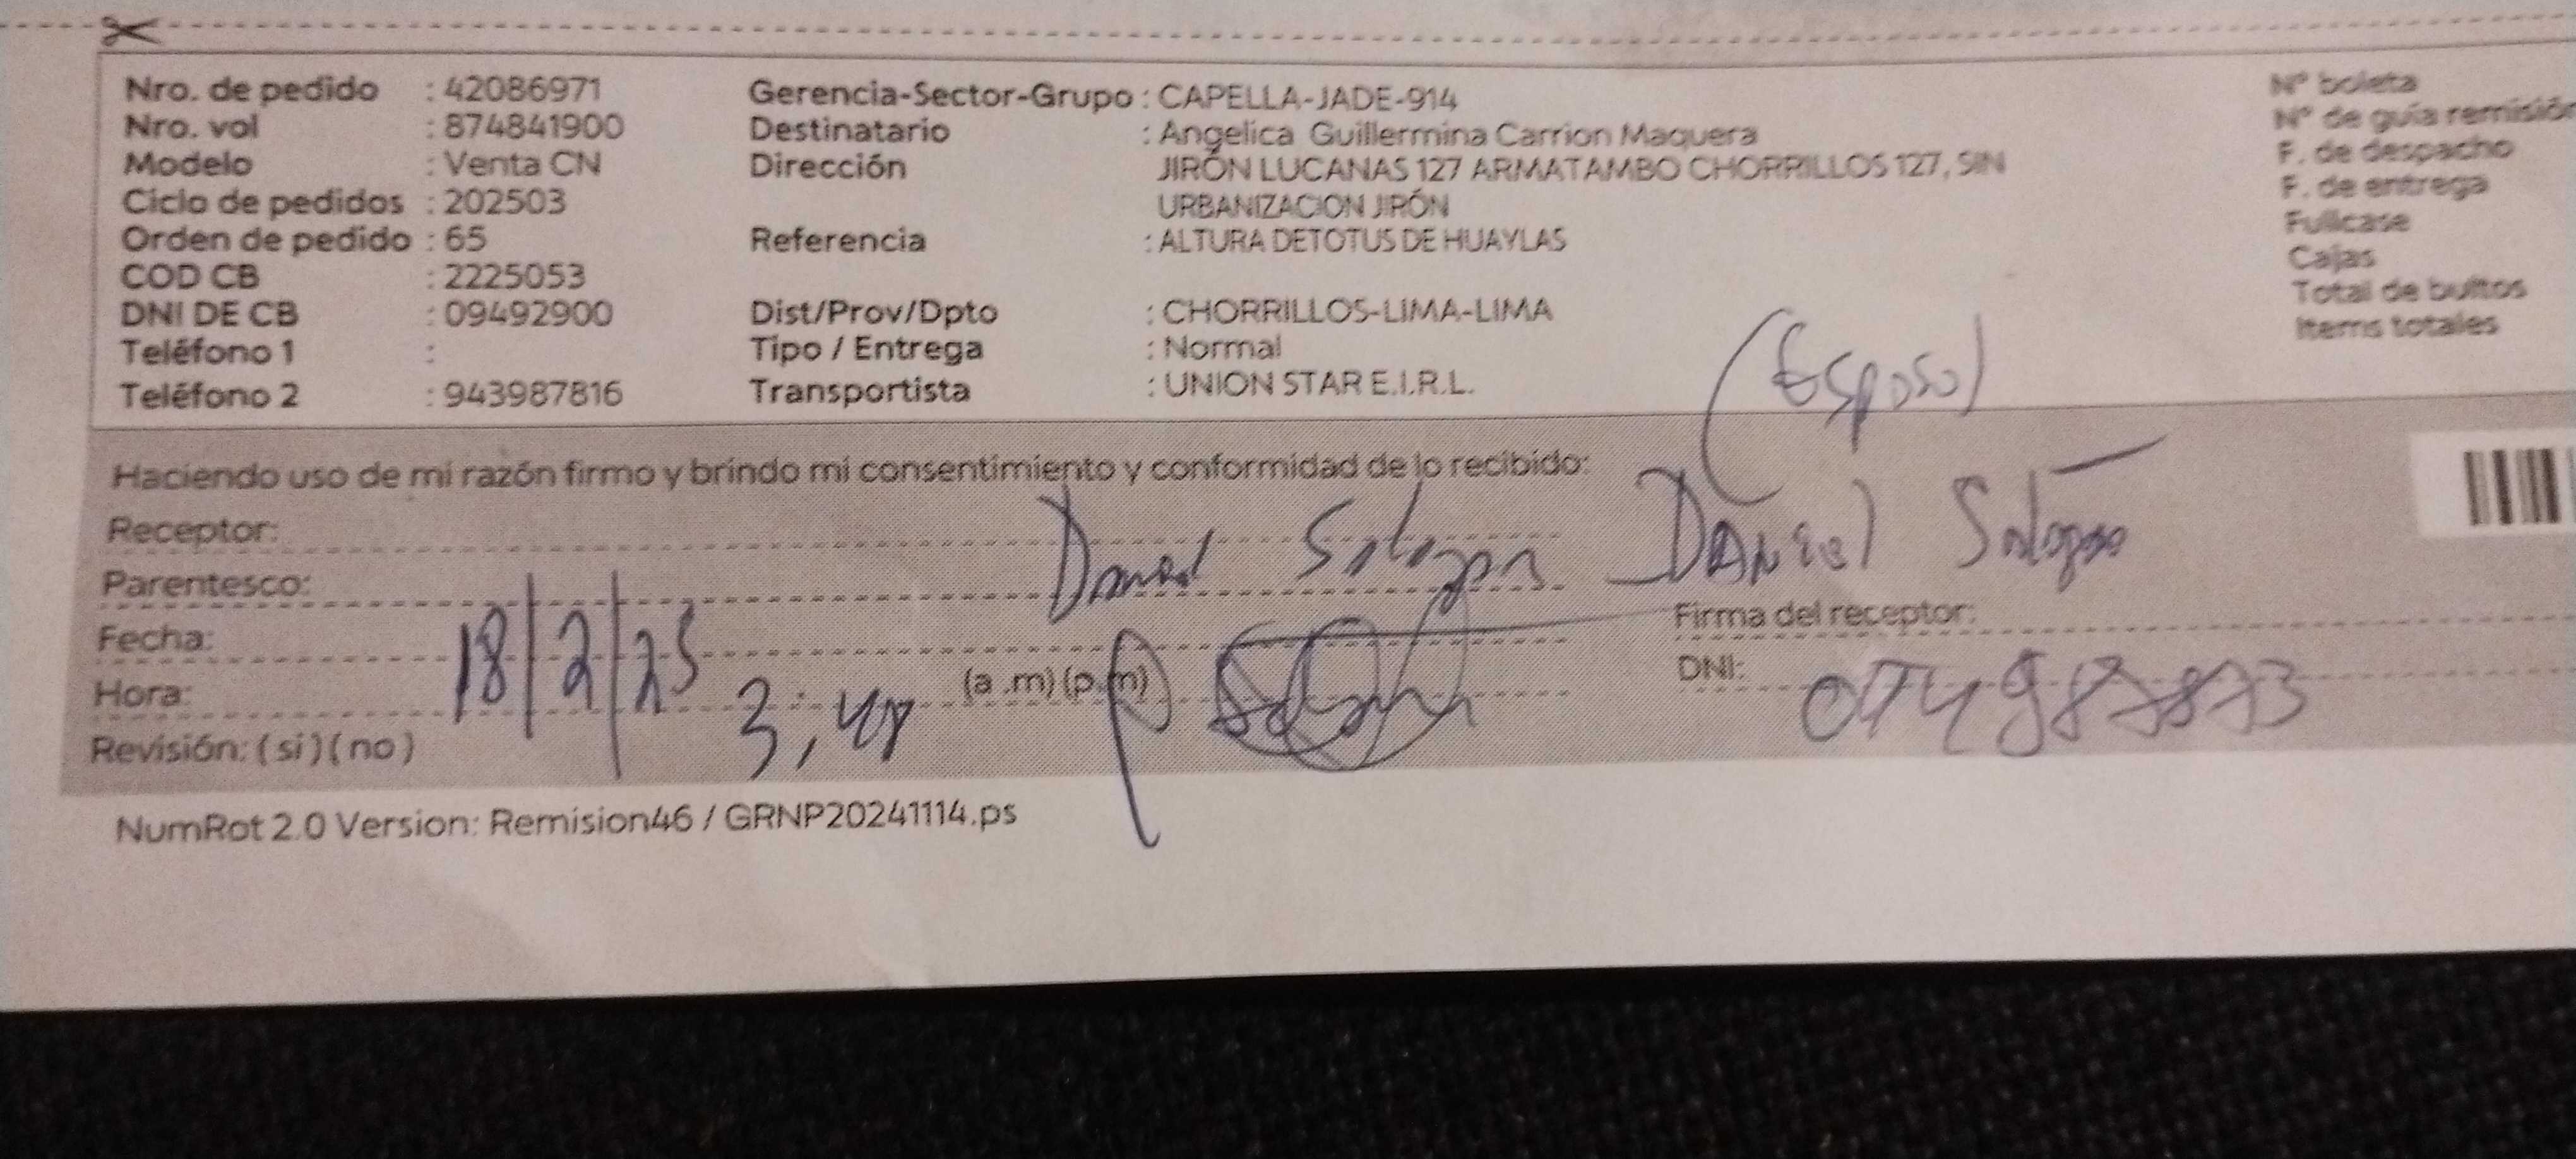 Nro. de pedido : 42086971
Nro. vol : 874841900
Modelo : Venta CN
Ciclo de pedidos : 202503
Orden de pedido : 65
COD CB : 2225053
DNI DE CB : 09492900
Teléfono 1 :
Teléfono 2 : 943987816
Gerencia-Sector-Grupo : CAPELLA-JADE-914
Destinatario : Angelica Guillermina Carrion Maquera
Dirección JIRÓN LUCANAS 127 ARMATAMBO CHORRILLOS 127, SIN
URBANIZACION JIRÓN
Referencia : ALTURA DETOTUS DE HUAYLAS
Dist/Prov/Dpto : CHORRILLOS-LIMA-LIMA
Tipo / Entrega : Normal
Transportista : UNION STAR E.I.R.L.
N° boleta
N° de guía remisión
F. de despacho
F. de entrega
Fullcase
Cajas
Total de bultos
Items totales
(Esposo)
Haciendo uso de mi razón firmo y brindo mi consentimiento y conformidad de lo recibido:
Receptor: Daniel
DANIEL
Parentesco:
Firma del receptor:
Fecha: 18/2/25
Hora: 3:48 (a .m) (p.m)
DNI:
Revisión: ( si ) ( no )
NumRot 2.0 Version: Remision46 / GRNP20241114.ps